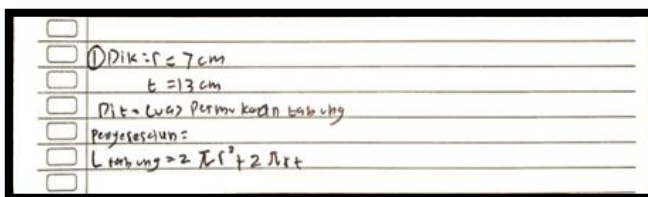 ① Dik : r = 7 cm
t = 13 cm
Dit = Luas Permukaan tabung
Penyelesaiun =
L tabung = 2 πr² + 2 πrt